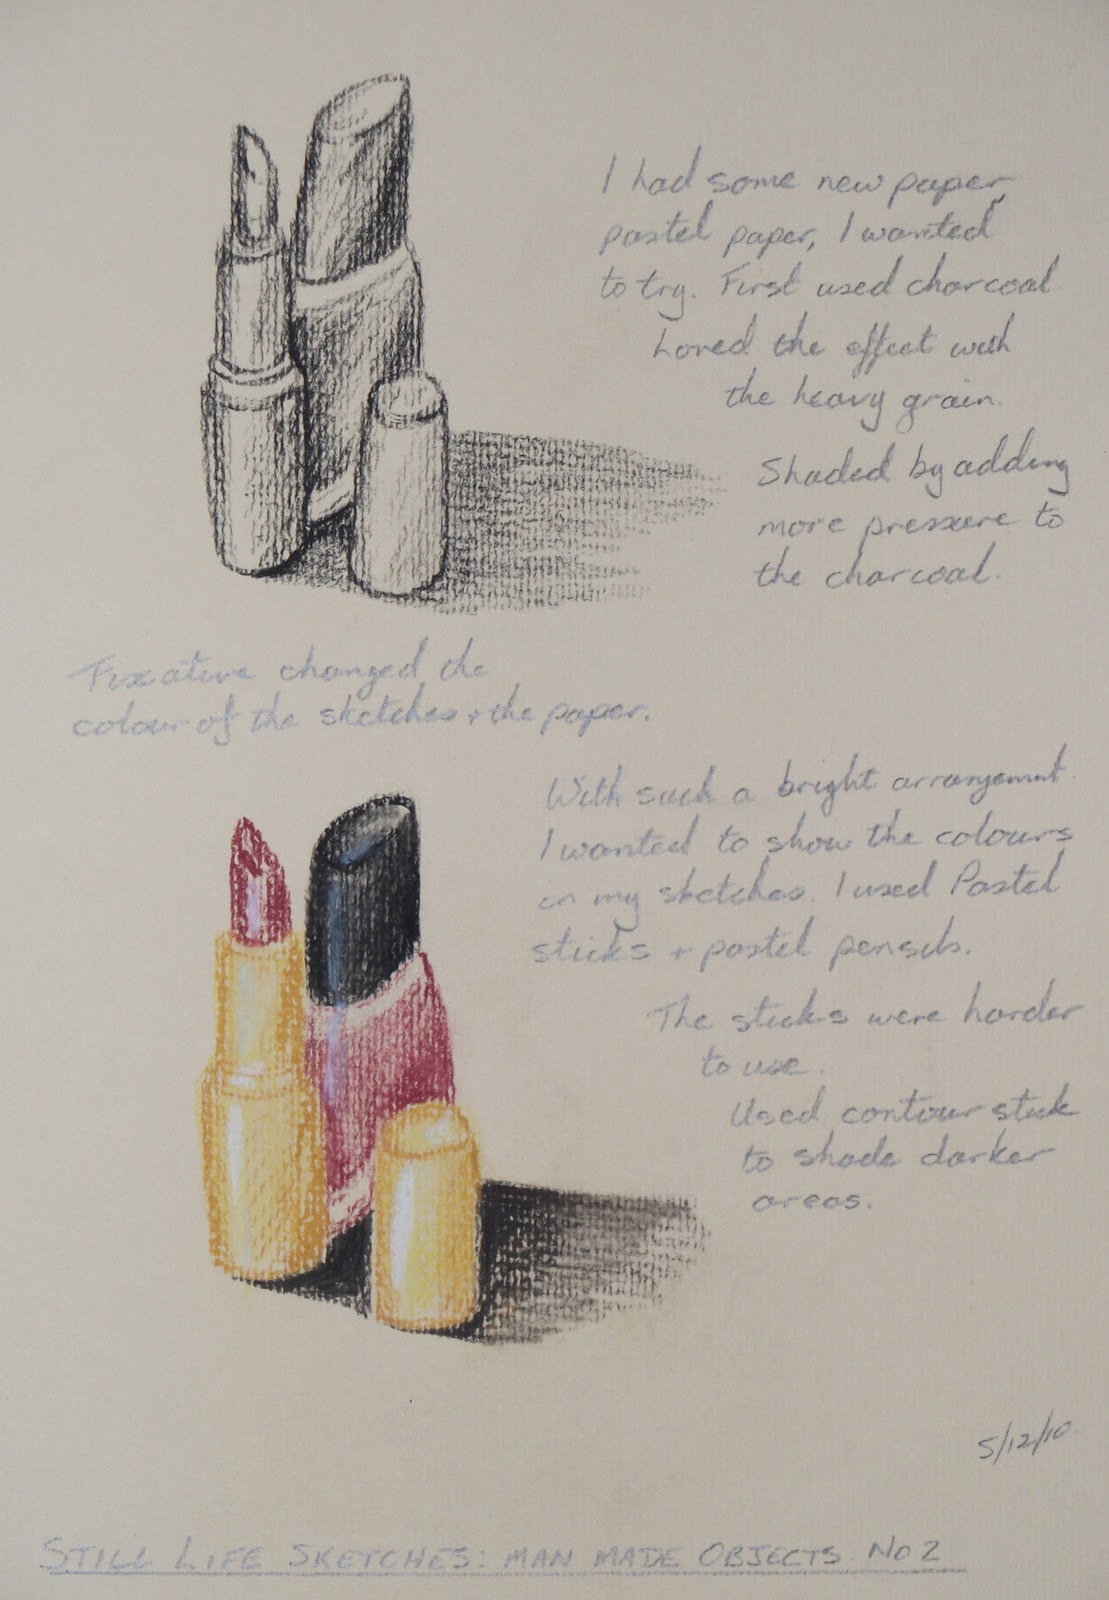 I had some new paper,
pastel paper, I wanted
to try. First used charcoal
Loved the effect with
the heavy grain.
Shaded by adding
more pressure to
the charcoal.
Fixative changed the
colour of the sketches + the paper.
With such a bright arrangement
I wanted to show the colours
in my sketches. I used Pastel
sticks + pastel pensils.
The sticks were harder
to use.
Used contour stick
to shade darker
areas.
5/12/10
STILL LIFE SKETCHES: MAN MADE OBJECTS. No 2